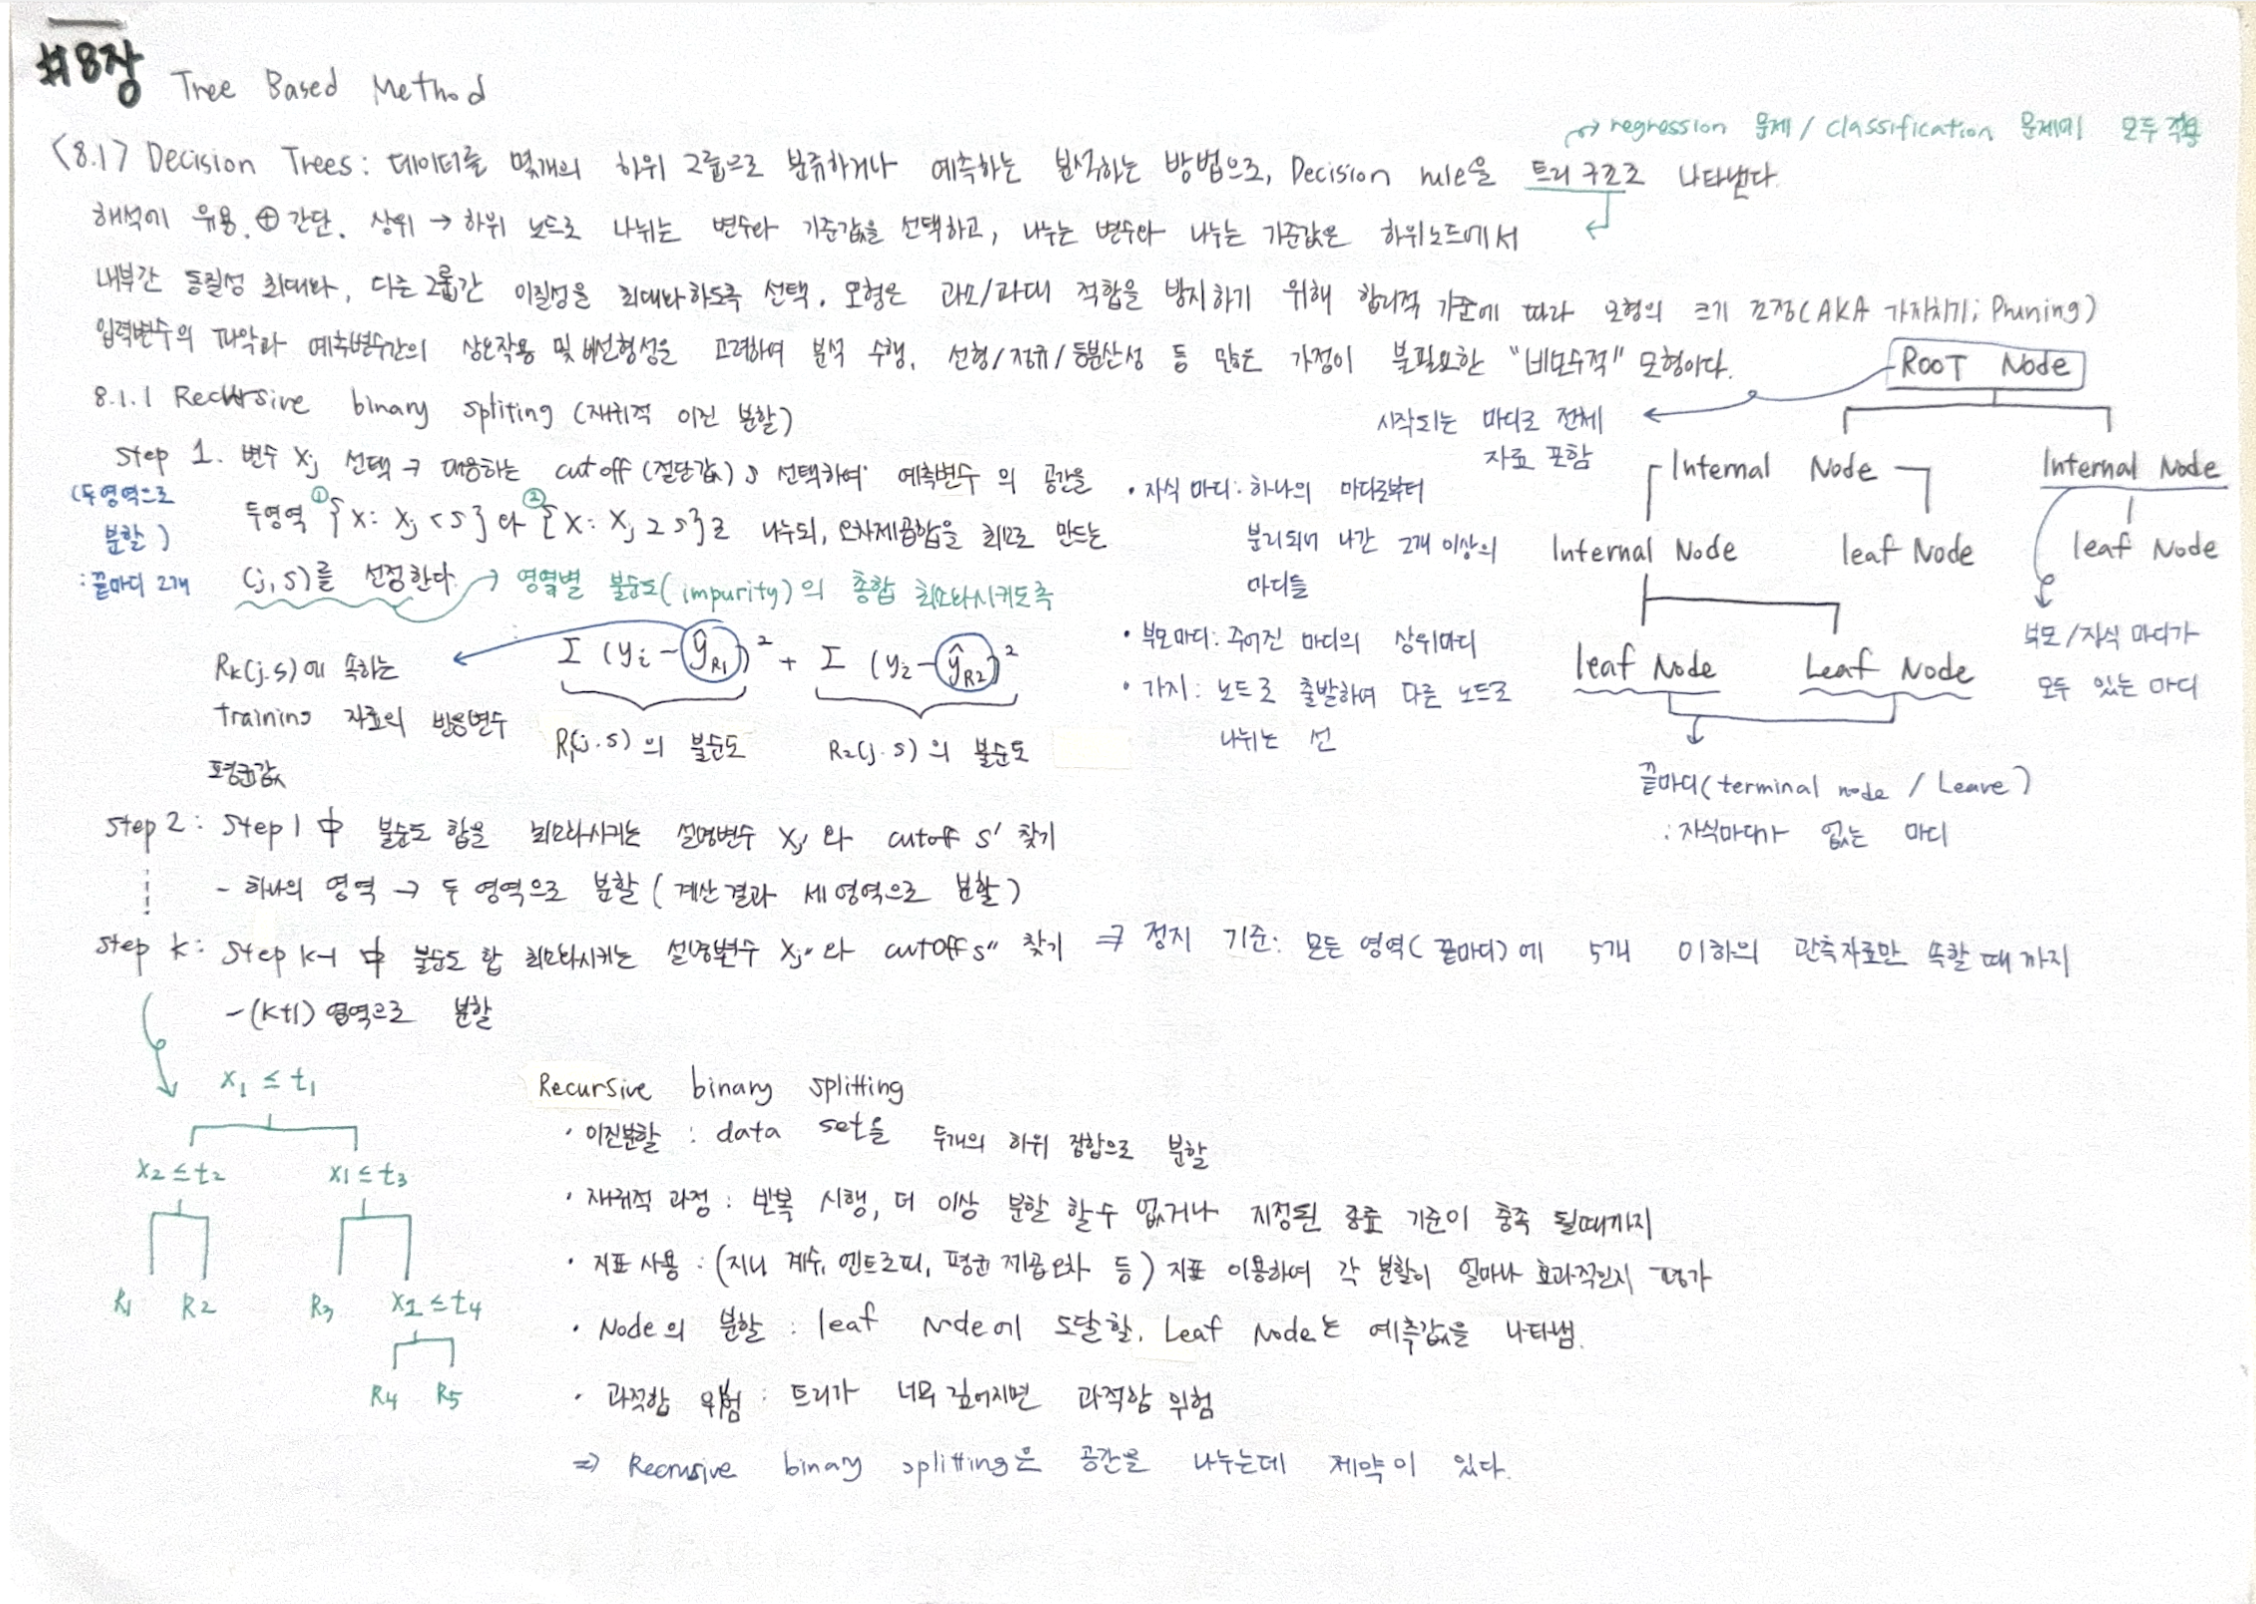 #8장 Tree Based Method
→ regression 문제 / classification 문제에 모두 적용
<8.1> Decision Trees : 데이터를 몇개의 하위 그룹으로 분류하거나 예측하는 분석하는 방법으로, Decision rule을 트리 구조로 나타낸다.
해석에 유용. ⊕ 간단. 상위 → 하위 노드로 나뉘는 변수와 기준값을 선택하고, 나누는 변수와 나누는 기준값은 하위노드에서
내부간 동질성 최대화, 다른 그룹간 이질성을 최대화하도록 선택. 모형은 과소/과대 적합을 방지하기 위해 합리적 기준에 따라 모형의 크기 조정(AKA 가지치기; Pruning)
입력변수의 파악과 예측변수간의 상호작용 및 비선형성을 고려하여 분석 수행. 선형/정규/등분산성 등 많은 가정이 불필요한 "비모수적" 모형이다.
8.1.1 Recursive binary spliting (재귀적 이진 분할)
Step 1. 변수 Xj 선택 → 대응하는 cutoff (절단값) s 선택하여 예측변수의 공간을
(두영역으로
분할)
: 끝마디 2개
두영역 ① {X: Xj < s} 와 ② {X: Xj ≥ s}로 나누되, 오차제곱합을 최소로 만드는
(j, s)를 선정한다. → 영역별 불순도(impurity)의 총합 최소화시키도록
Σ (yi - ŷR1)² + Σ (yi - ŷR2)²
Rk(j.s)에 속하는
training 자료의 반응변수
평균값
R1(j.s)의 불순도
R2(j.s)의 불순도
Step 2 : Step 1 中 불순도 합을 최소화시키는 설명변수 Xj' 와 cutoff s' 찾기
- 하나의 영역 → 두 영역으로 분할 (계산 결과 세 영역으로 분할)
Step k : Step k-1 中 불순도 합 최소화시키는 설명변수 Xj'' 와 cutoff s'' 찾기 ⇒ 정지 기준: 모든 영역(끝마디)에 5개 이하의 관측자료만 속할 때 까지
- (k+1) 영역으로 분할
ROOT Node
시작되는 마디로 전체
자료 포함
Internal Node
Internal Node
Internal Node
leaf Node
leaf Node
leaf Node
Leaf Node
부모/자식 마디가
모두 있는 마디
끝마디(terminal node / Leave)
: 자식마디가 없는 마디
• 자식 마디: 하나의 마디로부터
분리되어 나간 2개 이상의
마디들
• 부모마디: 주어진 마디의 상위마디
• 가지 : 노드로 출발하여 다른 노드로
나뉘는 선
X1 ≤ t1
X2 ≤ t2
X1 ≤ t3
R1
R2
R3
X2 ≤ t4
R4
R5
Recursive binary splitting
• 이진분할 : data set을 두개의 하위 집합으로 분할
• 재귀적 과정 : 반복 시행, 더 이상 분할 할수 없거나 지정된 종료 기준이 충족 될때까지
• 지표 사용 : (지니 계수, 엔트로피, 평균 제곱오차 등) 지표 이용하여 각 분할이 얼마나 효과적인지 평가
• Node의 분할 : leaf Node에 도달할. Leaf Node는 예측값을 나타냄.
• 과적합 위험 : 트리가 너무 깊어지면 과적합 위험
⇒ Recrusive binary splitting은 공간을 나누는데 제약이 있다.